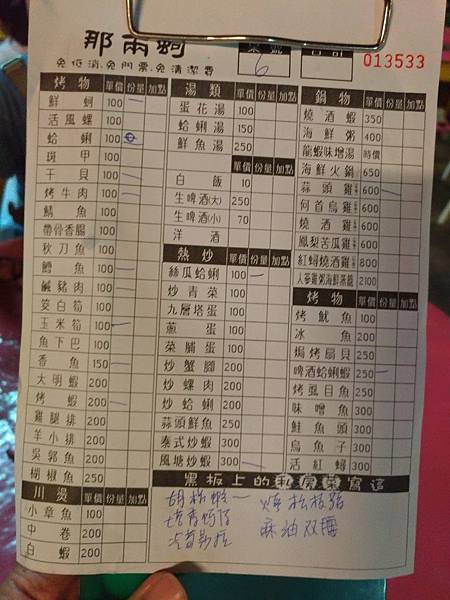 那兩蚵
桌號
合計
免低消.免門票.免清潔費
6
013533
烤物 單價 份量 加點
鮮蚵 100 一
活風螺 100
蛤蜊 100
斑甲 100
干貝 100 一
烤牛肉 100 一
鯖魚 100
帶骨香腸 100
秋刀魚 100
鱈魚 100 一
鹹豬肉 100 一
筊白筍 100
玉米筍 100 一
魚下巴 100
香魚 150 一
大明蝦 200
烤蝦 200 一
雞腿排 200
羊小排 200
吳郭魚 200
椒椒魚 250
川燙 單價 份量 加點
小章魚 100
中卷 200
白蝦 200
湯類 單價 份量 加點
蛋花湯 100
蛤蜊湯 150
鮮魚湯 200
單價 份量 加點
白飯 10
生啤酒(大) 250
生啤酒(小) 70
洋酒
熱炒 單價 份量 加點
絲瓜蛤蜊 100 一
炒青菜 100
九層塔蛋 100
蔥蛋 100
菜脯蛋 100
炒蟹腳 200
炒螺肉 200
炒蛤蜊 200
蒜頭鮮魚 250
泰式炒蝦 300
風塘炒蝦 300 一
鍋物 單價 份量 加點
燒酒蝦 350
海鮮粥 400
龍蝦味增湯 時價
海鮮火鍋 650
蒜頭雞 650 一
何首烏雞 650
燒酒雞 600
鳳梨苦瓜雞 600
紅蟳燒酒雞 800
2100
烤物 單價 份量 加點
烤魷魚 100
冰魚 200
焗烤扇貝 250
啤酒蛤蜊蝦 250 一
烤虱目魚 250
味噌魚 300
鮭魚頭 300
烏魚子 300
活紅蟳 300
黑板上的私房菜寫這
胡椒蝦一
燒松板豬
麻油双腰